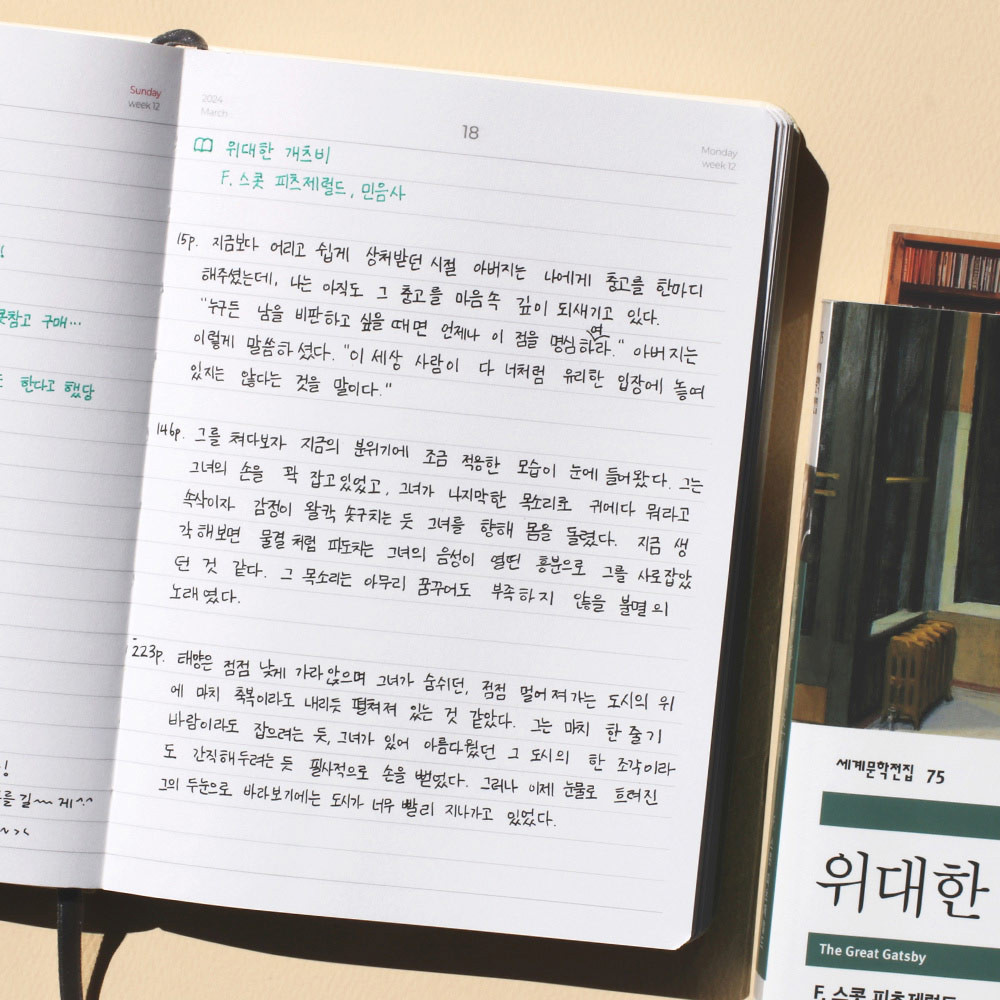 Sunday
week 12
고 구매…
한다고 했당
를 길~~ 게^^
2024
March
18
Monday
week 12
위대한 개츠비
F. 스콧 피츠제럴드, 민음사
15p. 지금보다 어리고 쉽게 상처받던 시절 아버지는 나에게 충고를 한마디
해주셨는데, 나는 아직도 그 충고를 마음속 깊이 되새기고 있다.
"누구든 남을 비판하고 싶을 때면 언제나 이 점을 명심하여라." 아버지는
이렇게 말씀하셨다. "이 세상 사람이 다 너처럼 유리한 입장에 놓여
있지는 않다는 것을 말이다."
146p. 그를 쳐다보자 지금의 분위기에 조금 적응한 모습이 눈에 들어왔다. 그는
그녀의 손을 꽉 잡고 있었고, 그녀가 나지막한 목소리로 귀에다 뭐라고
속삭이자 감정이 왈칵 솟구치는 듯 그녀를 향해 몸을 돌렸다. 지금 생
각해보면 물결처럼 파도치는 그녀의 음성이 열띤 흥분으로 그를 사로잡았
던 것 같다. 그 목소리는 아무리 꿈꾸어도 부족하지 않을 불멸의
노래였다.
223p. 태양은 점점 낮게 가라앉으며 그녀가 숨쉬던, 점점 멀어져가는 도시의 위
에 마치 축복이라도 내리듯 펼쳐져 있는 것 같았다. 그는 마치 한 줄기
바람이라도 잡으려는 듯, 그녀가 있어 아름다웠던 그 도시의 한 조각이라
도 간직해두려는 듯 필사적으로 손을 뻗었다. 그러나 이제 눈물로 흐려진
그의 두눈으로 바라보기에는 도시가 너무 빨리 지나가고 있었다.
세계문학전집 75
위대한
The Great Gatsby
F. 스콧 피츠제럴드